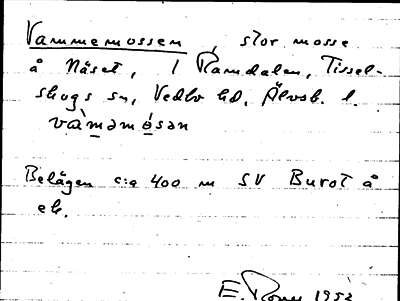 Vammemossen, stor mosse
å Näset, i Ramdalen, Tissel-
skogs sn, Vedbo hd, Älvsb. l.
vàməmósən
Belägen c:a 400 m SV Burot å
ek.
E. 1952